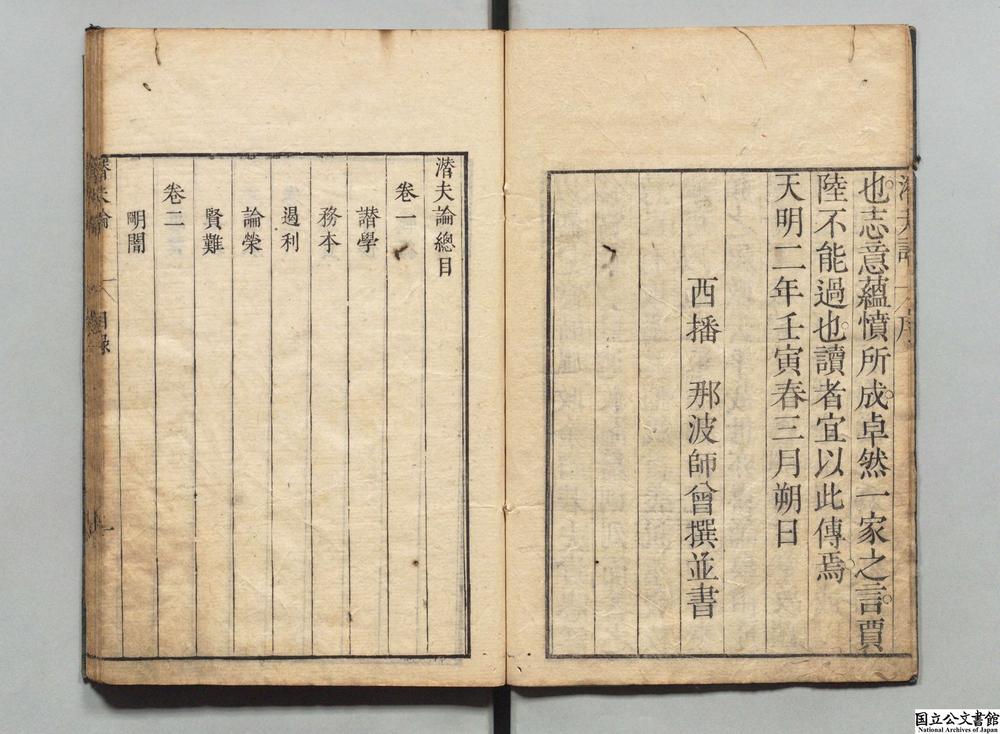 也志意蘊憤所成卓然一家之言賈
陸不能過也讀者宜以此傳焉
天明二年壬寅春三月朔日
西播　那波師曾撰並書
潛夫論總目
卷一
讃學
務本
遏利
論榮
賢難
卷二
明闇
潛夫論
目錄
一
国立公文書館
National Archives of Japan